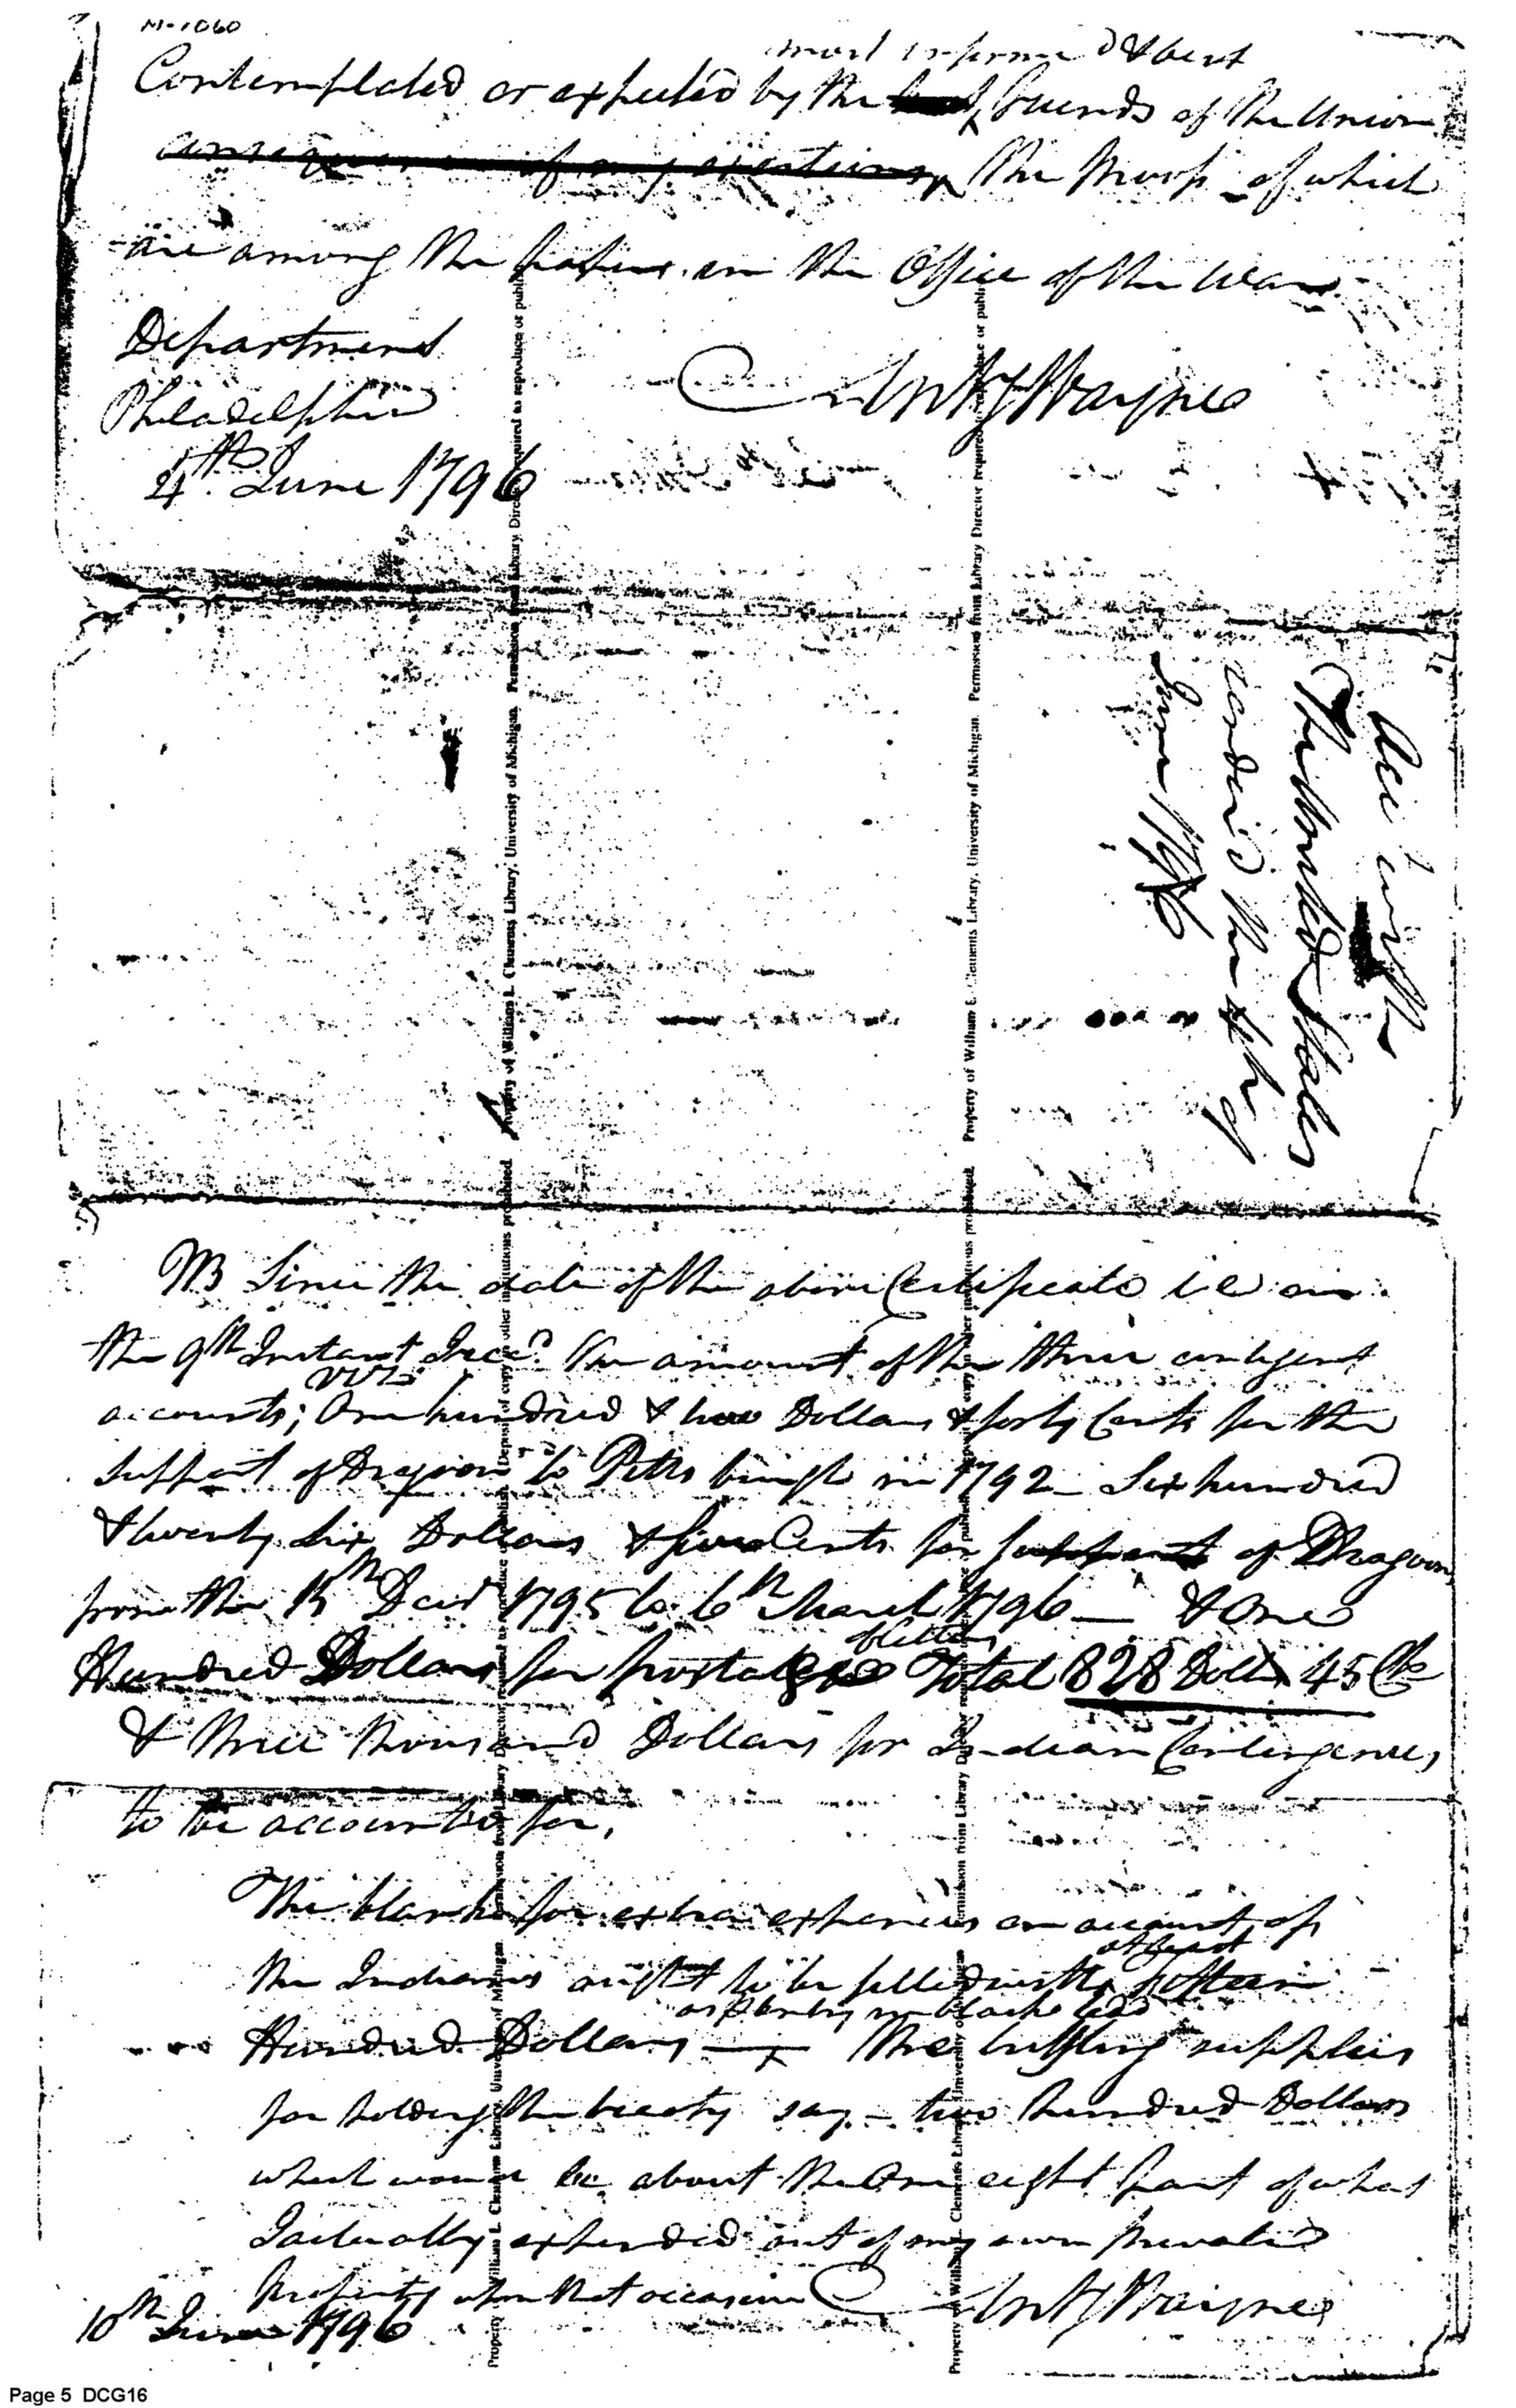 M-1060
most inform'd & best
Contemplated or expected by the friends of the Union
consequence of my exertions, The proofs of which
are among the papers in the Office of the War
Department
Philadelphia
4th June 1796
Anty Wayne
Acc' with
The United States
render'd the 4th of
June 1796
NB Since the date of the above Certificate i.e. on
the 9th Instant I rec'd the amount of the three contigent
viz
accounts; One hundred & two Dollars & forty Cents for the
support of Dragoons to Pittsburgh in 1792 - Six hundred
& twenty six Dollars & five Cents for support of Dragoons
from the 15th Decr 1795 to 6th March 1796 — & One
of letters
Hundred Dollars for postage Total 828 Dolls 45 Cts
& three thousand Dollars for Indian Contingencies,
to be accounted for,
The blank for extra expences on account of
at least
the Indians ought to be filled with fifteen
as Entry in black lead
Hundred Dollars — The supplies
for holding the treaty say - two hundred Dollars
which would be about the One eight part of what
I actually expended out of my own private
Property upon that occasion
Anty Wayne
10th June 1796
Property of William L. Clements Library, University of Michigan. Permission from Library Director required to reproduce or publish. Deposit of copy in other institutions prohibited.
Page 5 DCG16